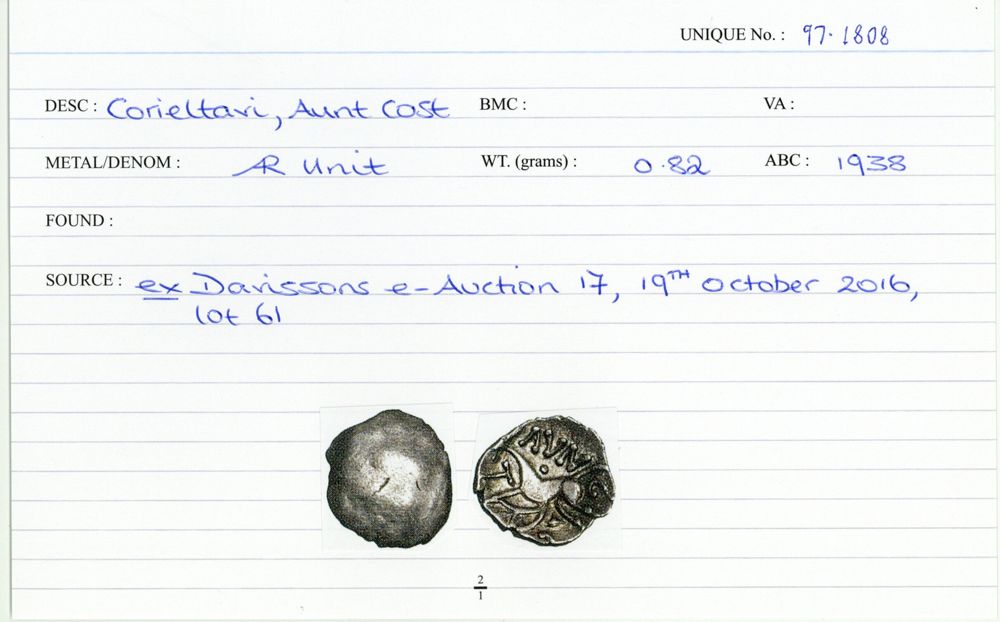 UNIQUE No. : 97.1808
DESC : Corieltavi, Aunt Cost BMC : VA :
METAL/DENOM : AR Unit WT. (grams) : 0.82 ABC : 1938
FOUND :
SOURCE : ex Davissons e-Auction 17, 19TH October 2016,
lot 61
AVN
2
1